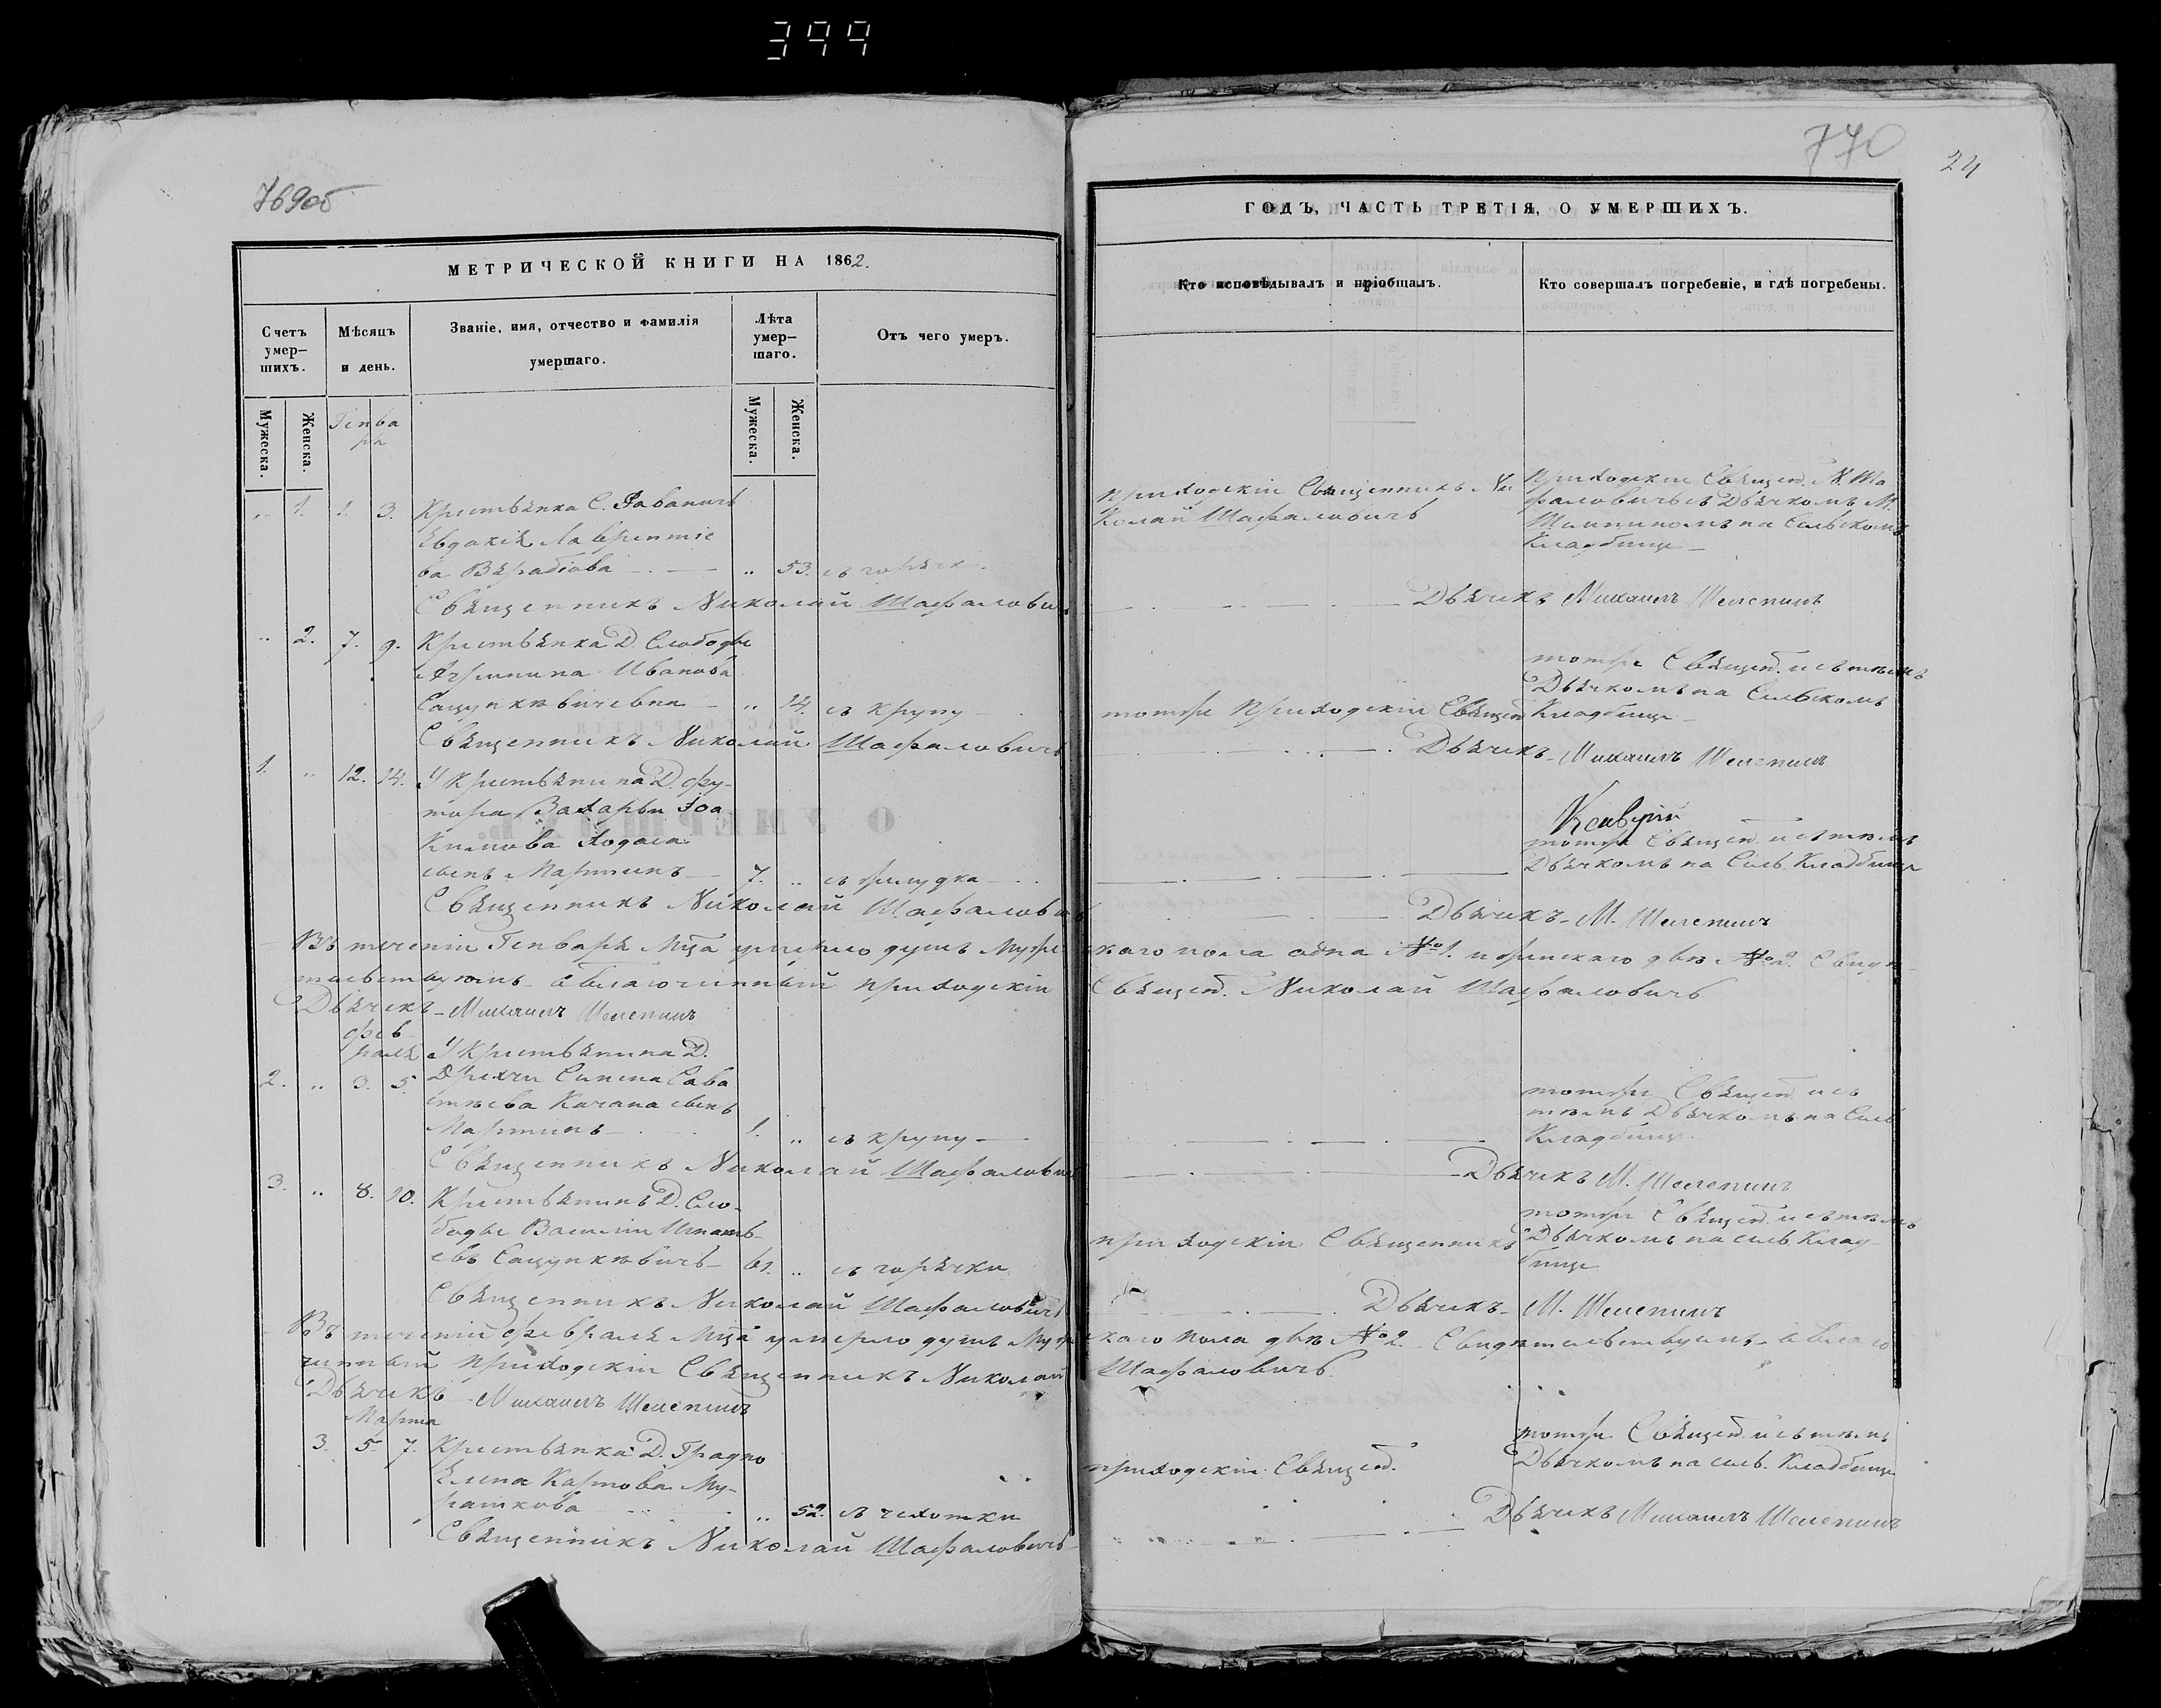 399
769об
770
24
МЕТРИЧЕСКОЙ КНИГИ НА 1862.
ГОДЪ, ЧАСТЬ ТРЕТІЯ, О УМЕРШИХЪ.
Счетъ умер–шихъ.
Мѣсяцъ и день.
Званіе, имя, отчество и фамилія умершаго.
Лѣта умер–шаго.
Отъ чего умеръ.
Кто исповѣдывалъ и пріобщалъ.
Кто совершалъ погребеніе, и гдѣ погребены.
Мужеска.
Женска.
Генва
ря
Мужеска.
Женска.
„ 1. 1. 3. Крестьянка С.
Евдокія Лаврентіе
ва — „ 53. съ горячк.
приходскій Священникъ Ни
колай Шафаловичъ
приходскій Свящеn. Н. Ша
фаловичъ съ Дьячкомъ М.
на Сельскомъ
Кладбище —
Священникъ Николай Шафаловичъ
Дьячекъ Михаилъ Шелепинъ
„ 2. 7. 9. Крестьянка Д. Слободы
Агрипина Иванова
Сацункѣвичевна — „ 14. съ крупу —
тотже приходскій Священ
тотже Священ. и съ тѣмъ
Дьячкомъ на Сельскомъ
Кладбище —
Священникъ Николай Шафаловичъ
Дьячекъ Михаилъ Шелепинъ
1. „ 12. 14. У крестьянина Д. Фу-
тора Захарьи Іоа
кимова Ходаса
сынъ Мартинъ — 7. „ съ желудка —
тотже Священ. и съ тѣмъ
Дьячкомъ на Сель. Кладбище
Священникъ Николай Шафаловичъ
Дьячекъ М. Шелепинъ
Въ теченіи Генваря Мца умерло душъ Мужескаго пола одна № 1. и женскаго двѣ № 2. Свидѣ-
тельствуютъ благочинный приходскій Священ. Николай Шафаловичъ
Дьячекъ Михаилъ Шелепинъ
Фев-
раля
У Крестьянина Д.
2. „ 3. 5. Дрехчи Сава
стѣева Качана сынъ
Мартинъ — 1. „ съ крупу —
тотже Священ. и съ
тѣмъ Дьячкомъ на Сель
Кладбище
Священникъ Николай Шафаловичъ
Дьячекъ М. Шелепинъ
3. „ 8. 10. Крестьянинъ Д. Сло-
боды Василій Игнать-
евъ Сацункѣвичъ — 61. „ съ горячки
приходскій Священникъ
тотже Священ. и съ тѣмъ
Дьячкомъ на сель. Клад-
бище
Священникъ Николай Шафаловичъ
Дьячекъ М. Шелепинъ
Въ теченіи Февраля Мца умерло душъ Мужескаго пола двѣ № 2. Свидѣтельствуютъ благо
чинный приходскій Священникъ Николай Шафаловичъ
Дьячекъ Михаилъ Шелепинъ
Марта
3. 5. 7. Крестьянка Д. Градно
Елена Карпова Му-
раткова — „ 52. съ чехотки
приходскій Священ.
тотже Священ. и съ тѣмъ
Дьячкомъ на сель. Кладбище
Священникъ Николай Шафаловичъ
Дьячекъ Михаилъ Шелепинъ